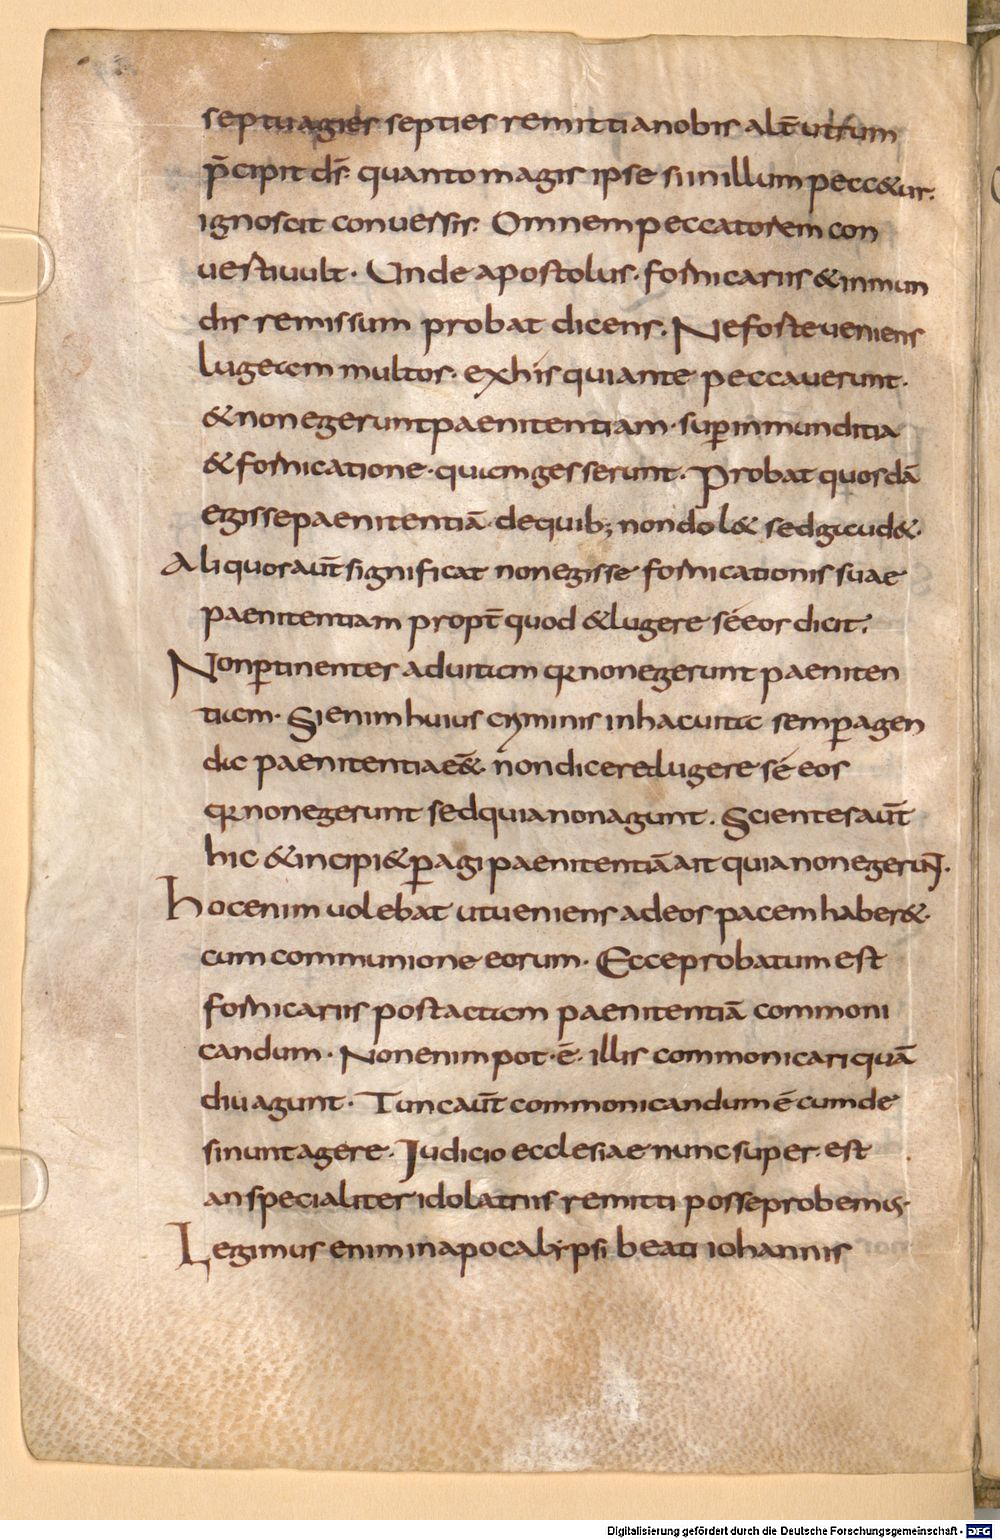 septuagies septies remitti a nobis alt̄ utrum
p̄cipit d̄s· quanto magis ipse si in illum pecc&ur·
ignoscit conuessis· Omnem peccatorem con
uerti uult· Unde apostolus· fornicariis & inmun
dis remissum probat dicens. Ne forte ueniens
lugeam multos· ex his qui ante peccauerunt·
& non egerunt paenitentiam· sup̱ inmunditia
& fornicatione· quam gesserunt· Probat quosdā
egisse paenitentiā de quib; non dol& sed gaud&·
Aliquos aut̄ significat non egisse fornicationis suae
paenitentiam propt̄ quod & lugere sé eos dicit·
Non p̱tinentes ad uitam qr non egerunt paeniten
tiam· Si enim huius criminis in hac uita semp̱ agen
da paenitentia e&· non dicer& lugere sé eos
qr non egerunt sed quia non agunt. Scientes aut̄
hic & incipi& p̱agi paenitentiā ait quia non egerunt·
hoc enim uolebat ut ueniens ad eos pacem haber&·
cum communione eorum· Ecce probatum est
fornicariis post actam paenitentiā commoni
candum· Non enim pot·ē· illis commonicari quā
diu agunt· Tunc aut̄ commonicandum ē cum de
sinunt agere· Iudicio ecclesiae nunc super est
an specialiter idolatriis remitti posse probemus·
Legimus enim in apocalypsi beati iohannis
Digitalisierung gefördert durch die Deutsche Forschungsgemeinschaft - DFG